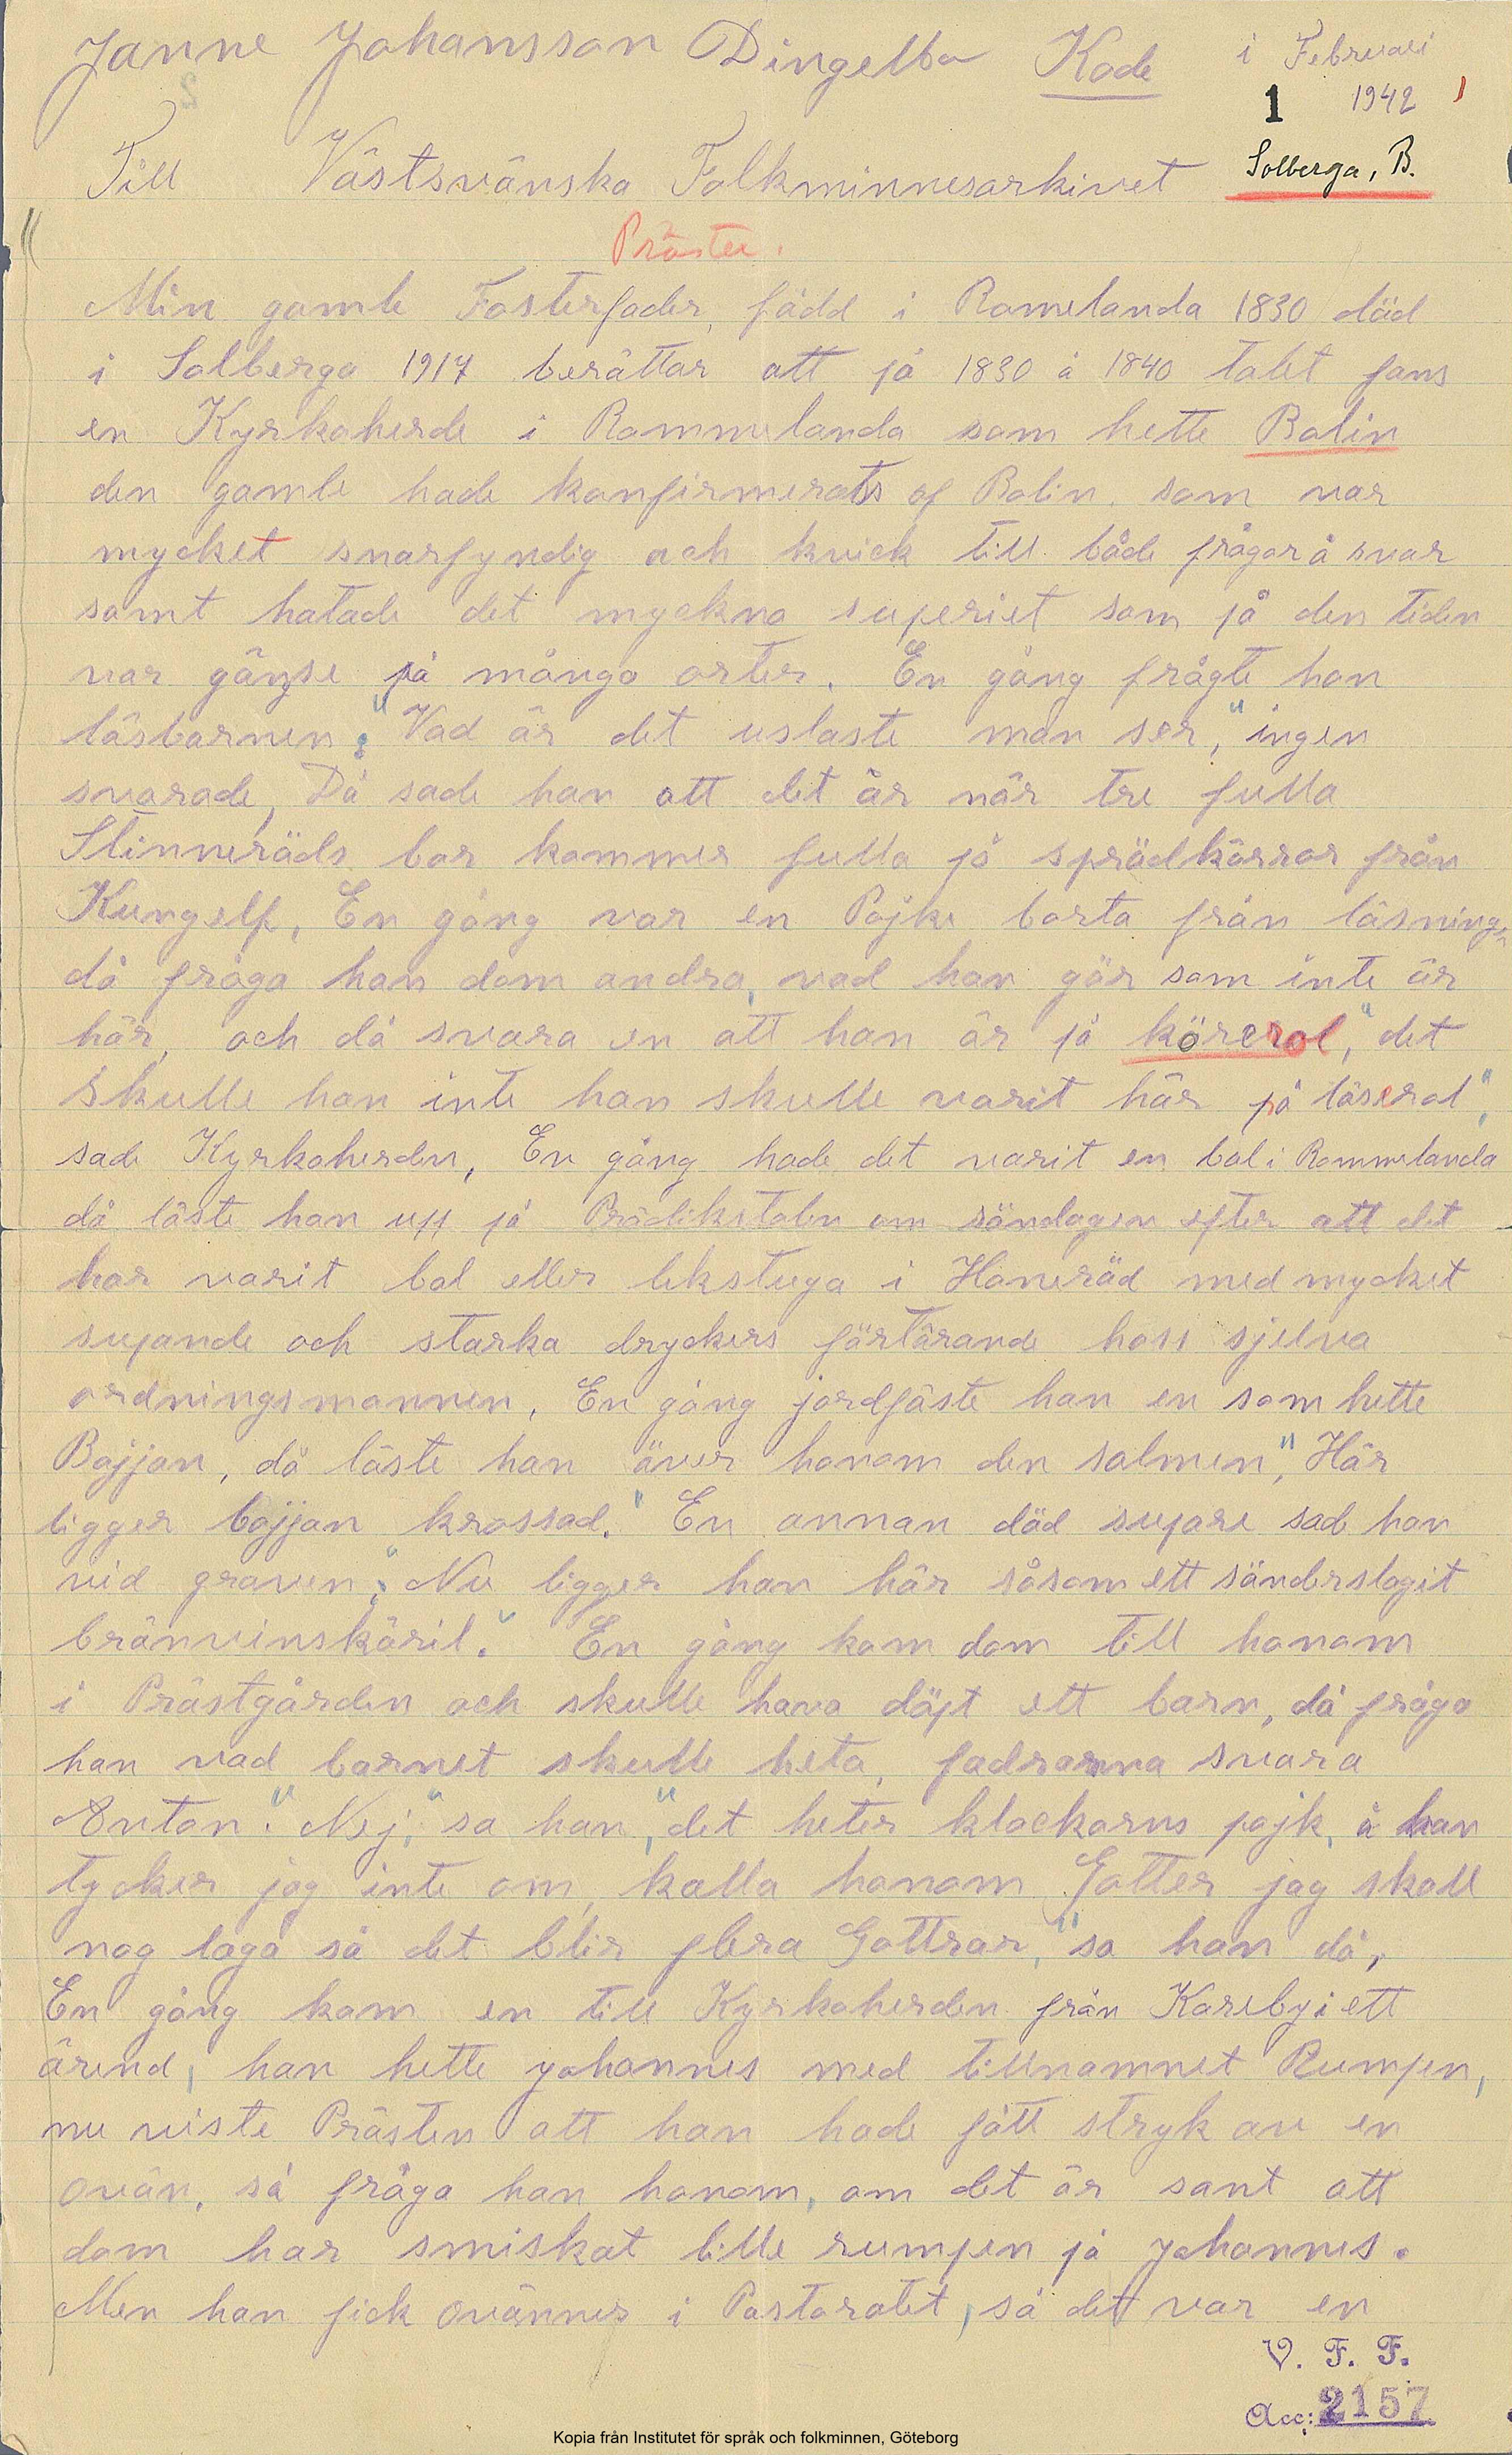 Janne Johansson Dingelba Kode i Februari
1 1942 1
Till Västsvänska Folkminnesarkivet Solberga, B.
Präster.
Min gamle Fosterfader, född i Romelanda 1830 död
i Solberga 1917 berättar att på 1830 å 1840 talet fans
en Kyrkoherde i Rommelanda som hette Bolin
den gamle hade konfirmerats af Bolin. som var
mycket snarfyndig och kvick till både frågor å svar
samt hatade det myckna superiet som på den tiden
var gängse på många orter. En gång frågte han
läsbarnen: "Vad är det uslaste man ser," ingen
svarade, Då sade han att det är när tre fulla
Slinneröds bor kommer fulla på sprödkärror från
Kungelf, En gång var en Pojke borta från läsningen
då fråga han dom andra, vad han gör som inte är
här, och då svara en att han är på körerol," det
skulle han inte han skulle varit här på läserol",
sade Kyrkoherden, En gång hade det varit en bal i Rommelanda
då läste han upp på Prädikstolen om söndagen efter att det
har varit bal eller lekstuga i Haneröd med mycket
supande och starka dryckers förtärande hoss sjelva
ordningsmannen, En gång jordfäste han en som hette
Bojjan, då läste han över honom den salmen", Här
ligger bojjan krossad." En annan död supare sade han
vid graven: "Nu ligger han här såsom ett sönderslagit
bränvinskäril." En gång kom dom till honom
i Prästgården och skulle hava döpt ett barn, då fråga
han vad barnet skulle heta, fadrarna svara
Anton." Nej," sa han, "det heter klockarns pojk, å han
tycker jag inte om, kalla honom Gotter jag skall
nog laga så det blir flera Gottrar," sa han då,
En gång kom en till Kyrkoherden från Kareby i ett
ärend, han hette Johannes med tillnamnet Rumpen,
nu viste Prästen att han hade fått stryk av en
ovän, så fråga han honom, om det är sant att
dom har smiskat lille rumpen på Johannes.
Men han fick ovänner i Pastoratet, så det var en
V. F. F.
Acc: 2157
Kopia från Institutet för språk och folkminnen, Göteborg